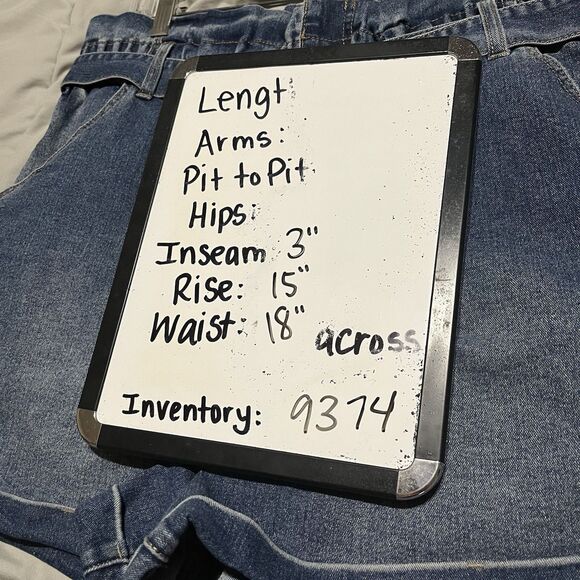 Lengt
Arms:
Pit to Pit
Hips:
Inseam 3"
Rise: 15"
Waist: 18" across
Inventory: 9374